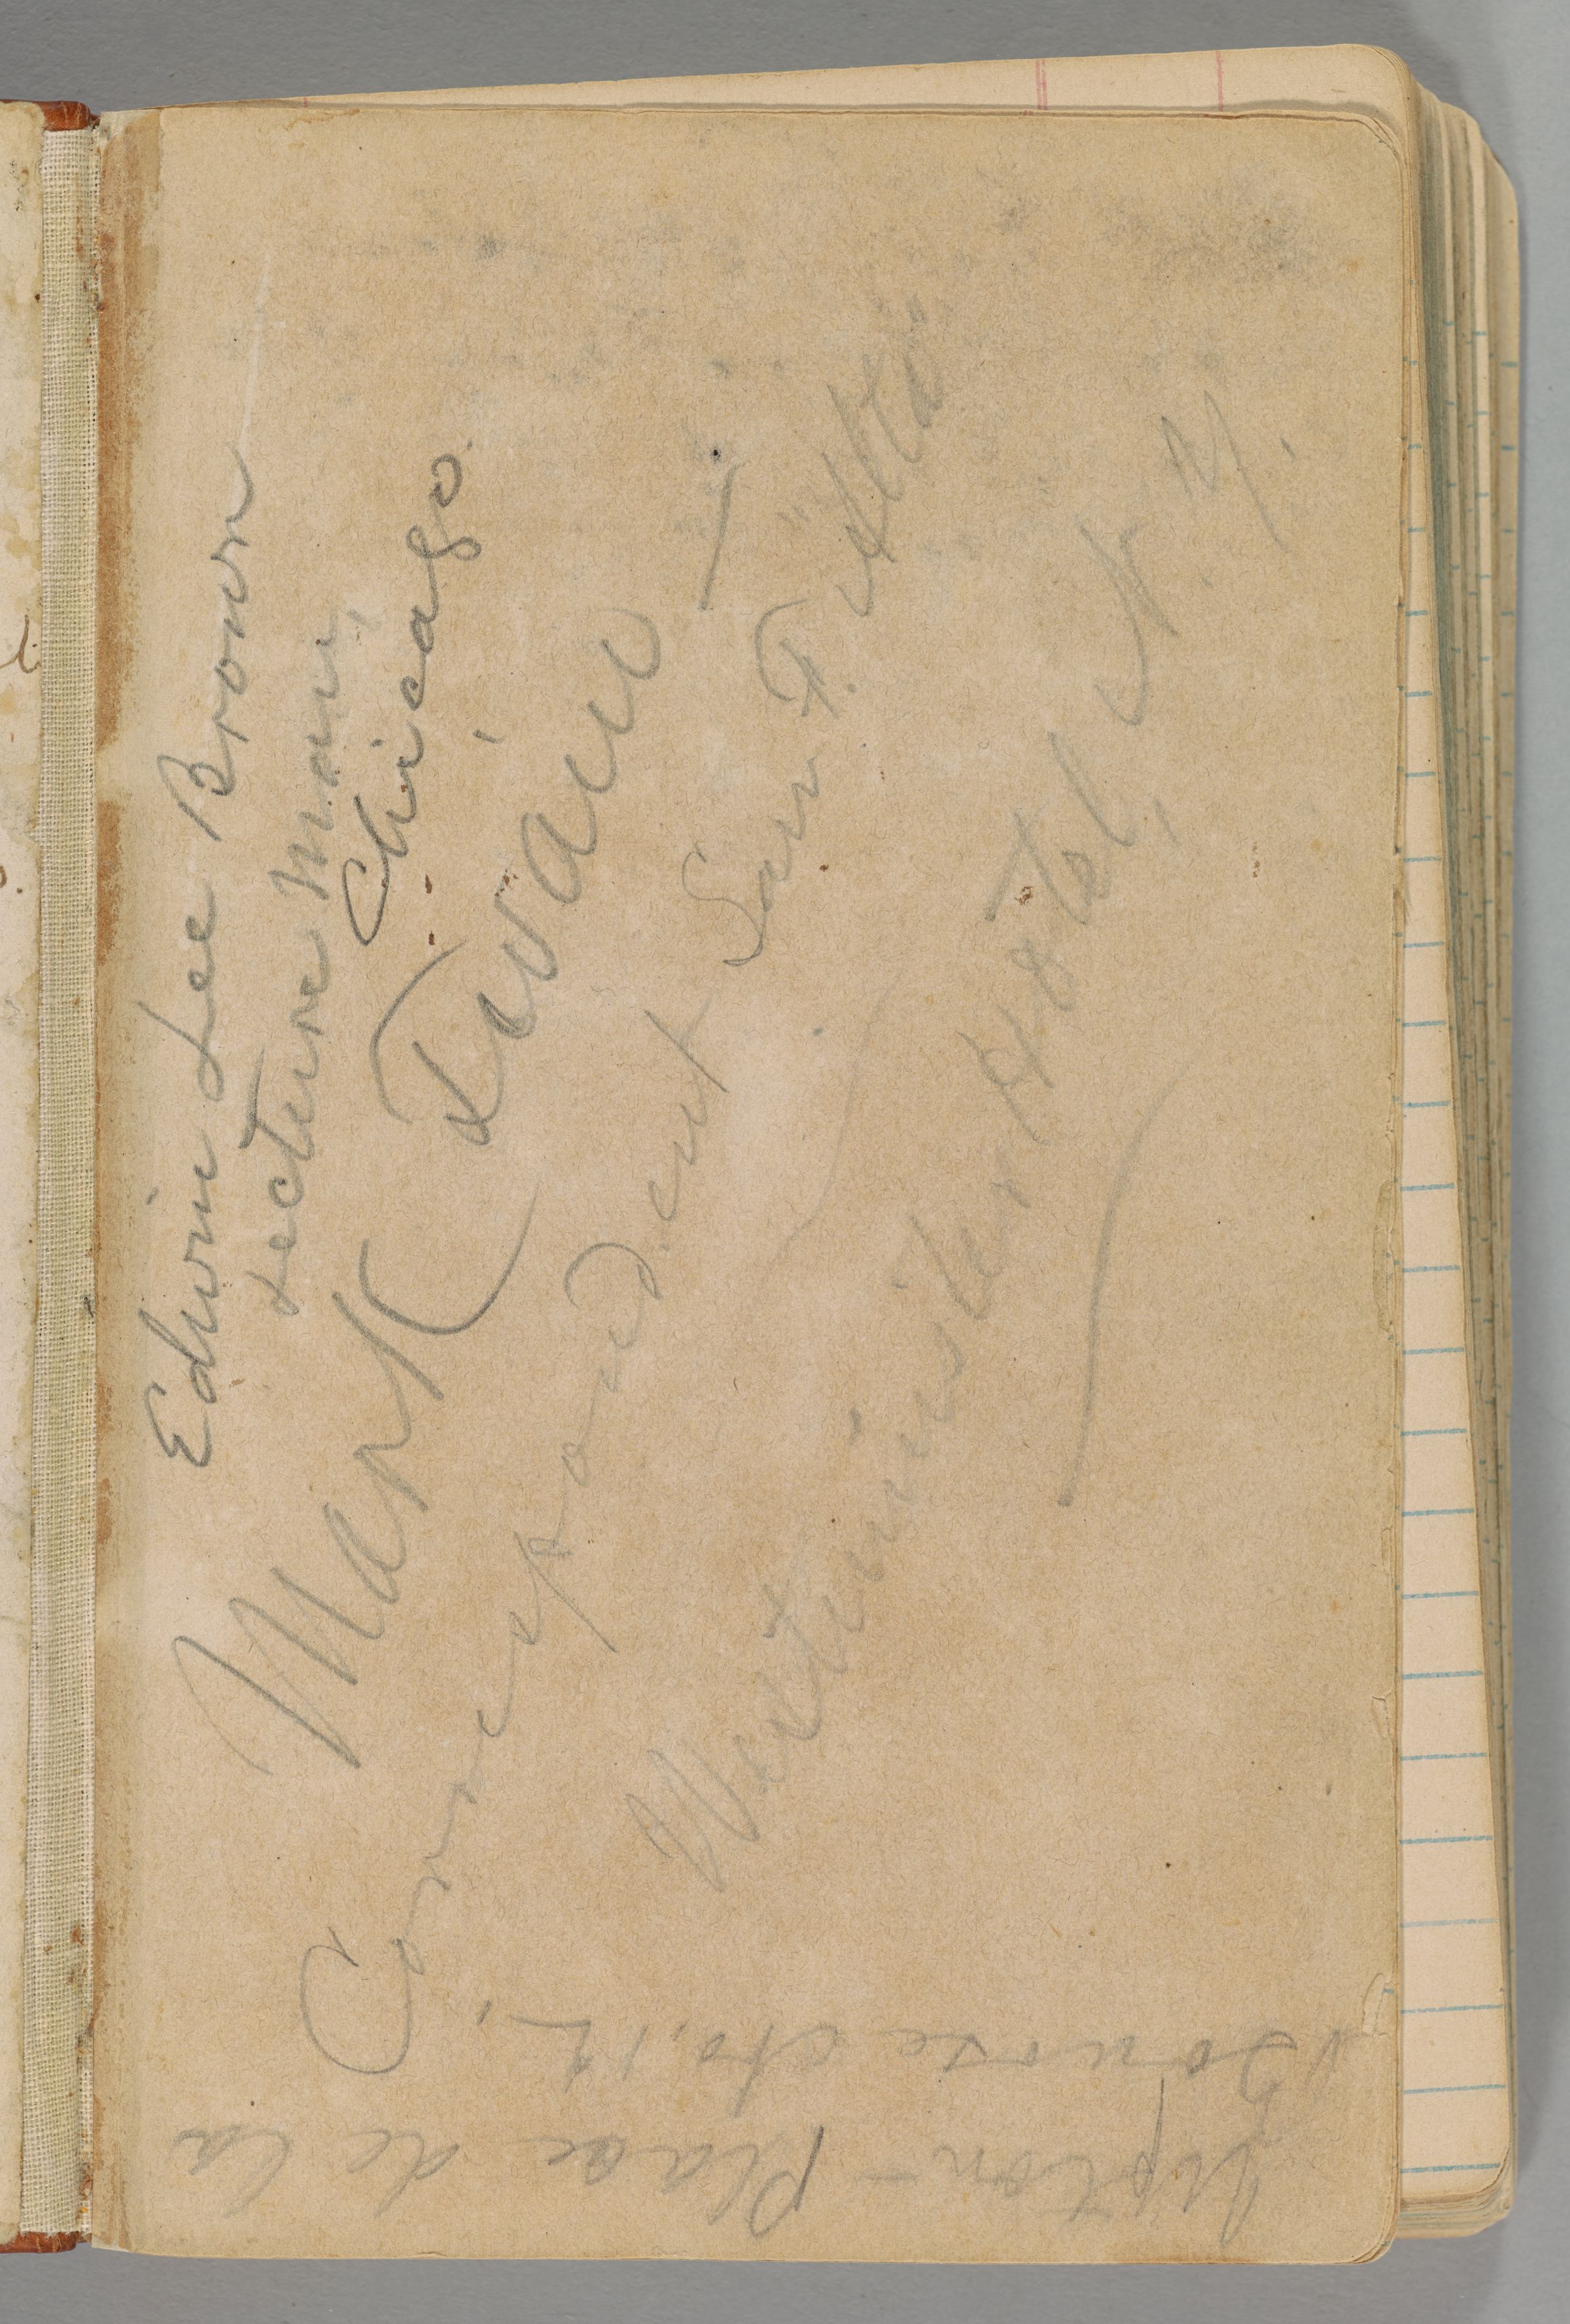 Edwin Lee Brown
Lecture man,
Chicago.
Mark Twain
Correspondent San F. "Alta"
Westminster Hotel, N. Y.
Upton — Place de la
Bourse No. 12,